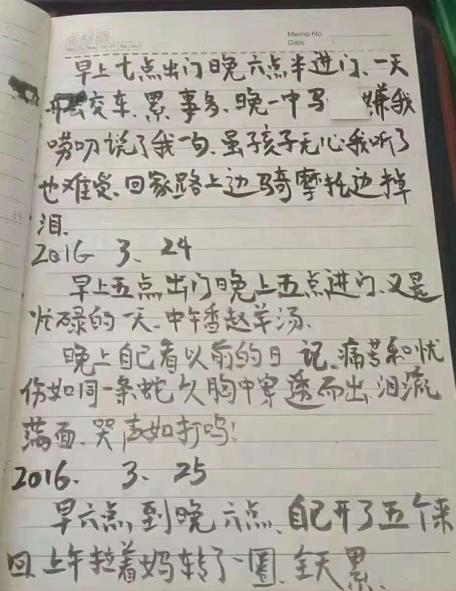 Memo No.
Date
Mo Tu We Th Fr Sa Su
早上七点出门晚六点半进门、一天
开公交车、累、事多、晚一中马 嫌我
唠叨说了我一句、虽孩子无心我听了
也难受、回家路上边骑摩托边掉
泪.
2016 3、24
早上五点出门晚上五点进门、又是
忙碌的一天、中午香赵羊汤、
晚上自己看以前的日记、痛苦和忧
伤如同一条蛇久胸中穿透而出、泪流
满面、哭声如打鸣！
2016. 3. 25
早六点到晚六点、自己开了五个来
回、上午拉着妈转了一圈、全天累、